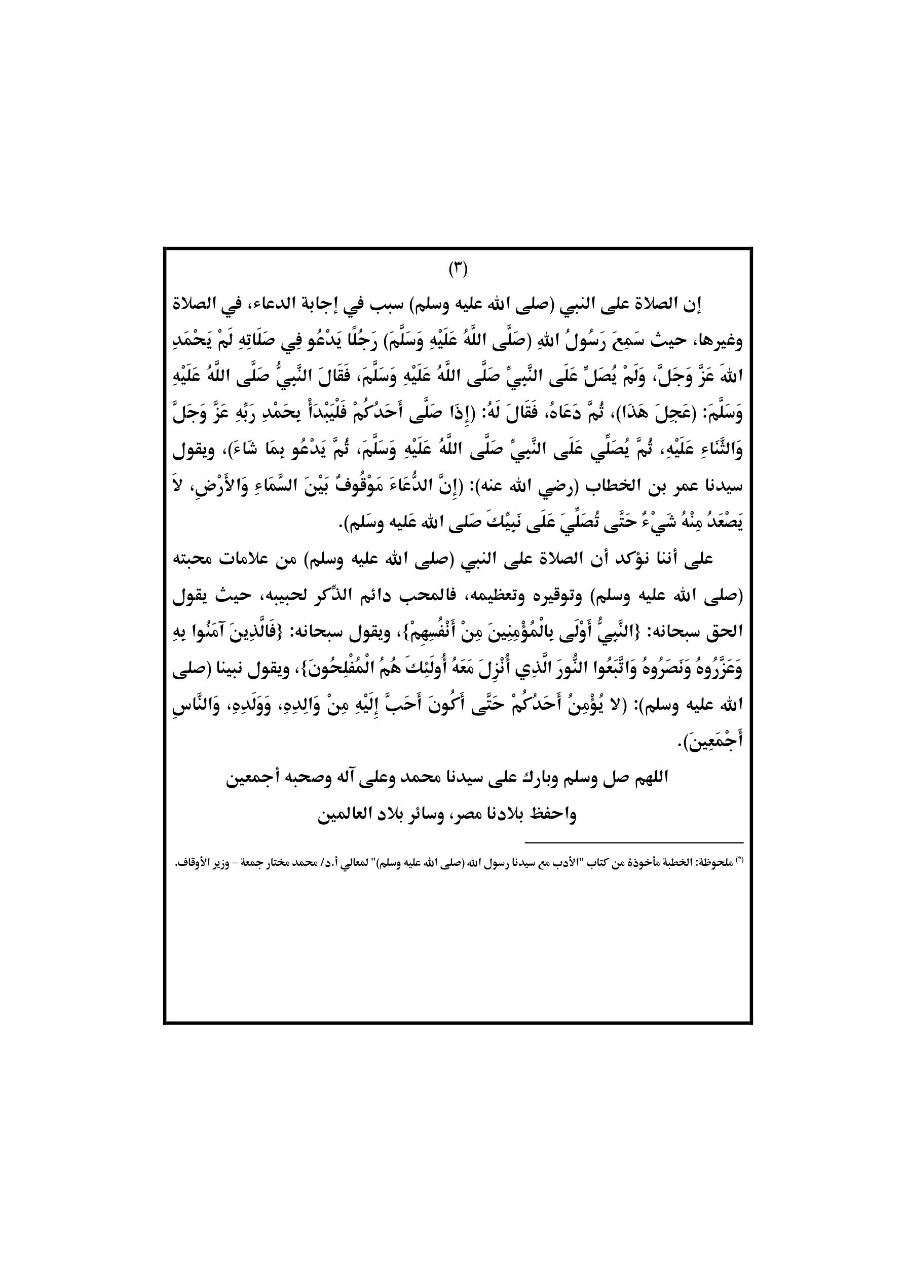 (٣)
إن الصلاة على النبي (صلى الله عليه وسلم) سبب في إجابة الدعاء، في الصلاة
وغيرها، حيث سَمِعَ رَسُولُ اللهِ (صَلَّى اللَّهُ عَلَيْهِ وَسَلَّمَ) رَجُلًا يَدْعُو فِي صَلَاتِهِ لَمْ يَحْمَدِ
اللهَ عَزَّ وَجَلَّ، وَلَمْ يُصَلِّ عَلَى النَّبِيِّ صَلَّى اللَّهُ عَلَيْهِ وَسَلَّمَ، فَقَالَ النَّبِيُّ صَلَّى اللَّهُ عَلَيْهِ
وَسَلَّمَ: (عَجِلَ هَذَا)، ثُمَّ دَعَاهُ، فَقَالَ لَهُ: (إِذَا صَلَّى أَحَدُكُمْ فَلْيَبْدَأْ بِحَمْدِ رَبِّهِ عَزَّ وَجَلَّ
وَالثَّنَاءِ عَلَيْهِ، ثُمَّ يُصَلِّي عَلَى النَّبِيِّ صَلَّى اللَّهُ عَلَيْهِ وَسَلَّمَ، ثُمَّ يَدْعُو بِمَا شَاءَ)، ويقول
سيدنا عمر بن الخطاب (رضي الله عنه): (إِنَّ الدُّعَاءَ مَوْقُوفٌ بَيْنَ السَّمَاءِ وَالأَرْضِ، لاَ
يَصْعَدُ مِنْهُ شَيْءٌ حَتَّى تُصَلِّيَ عَلَى نَبِيِّكَ صَلى الله عَليه وسَلم).
على أننا نؤكد أن الصلاة على النبي (صلى الله عليه وسلم) من علامات محبته
(صلى الله عليه وسلم) وتوقيره وتعظيمه، فالمحب دائم الذِّكر لحبيبه، حيث يقول
الحق سبحانه: {النَّبِيُّ أَوْلَى بِالْمُؤْمِنِينَ مِنْ أَنْفُسِهِمْ}، ويقول سبحانه: {فَالَّذِينَ آمَنُوا بِهِ
وَعَزَّرُوهُ وَنَصَرُوهُ وَاتَّبَعُوا النُّورَ الَّذِي أُنْزِلَ مَعَهُ أُولَئِكَ هُمُ الْمُفْلِحُونَ}، ويقول نبينا (صلى
الله عليه وسلم): (لا يُؤْمِنُ أَحَدُكُمْ حَتَّى أَكُونَ أَحَبَّ إِلَيْهِ مِنْ وَالِدِهِ، وَوَلَدِهِ، وَالنَّاسِ
أَجْمَعِينَ).
اللهم صل وسلم وبارك على سيدنا محمد وعلى آله وصحبه أجمعين
واحفظ بلادنا مصر، وسائر بلاد العالمين
(*) ملحوظة: الخطبة مأخوذة من كتاب "الأدب مع سيدنا رسول الله (صلى الله عليه وسلم)" لمعالي أ.د/ محمد مختار جمعة – وزير الأوقاف.